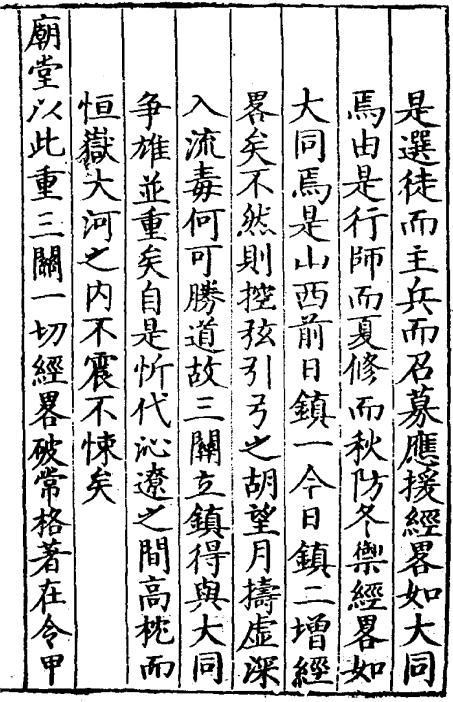 是選徒而主兵而召募應援經畧如大同
焉由是行師而夏修而秋防冬禦經畧如
大同焉是山西前日鎮一今日鎮二增經
畧矣不然則控弦引弓之胡望月擣虛深
入流毒何可勝道故三關立鎮得與大同
争雄並重矣自是忻代沁遼之間高枕而
恒嶽大河之内不震不悚矣
廟堂以此重三關一切經畧破常格著在令甲